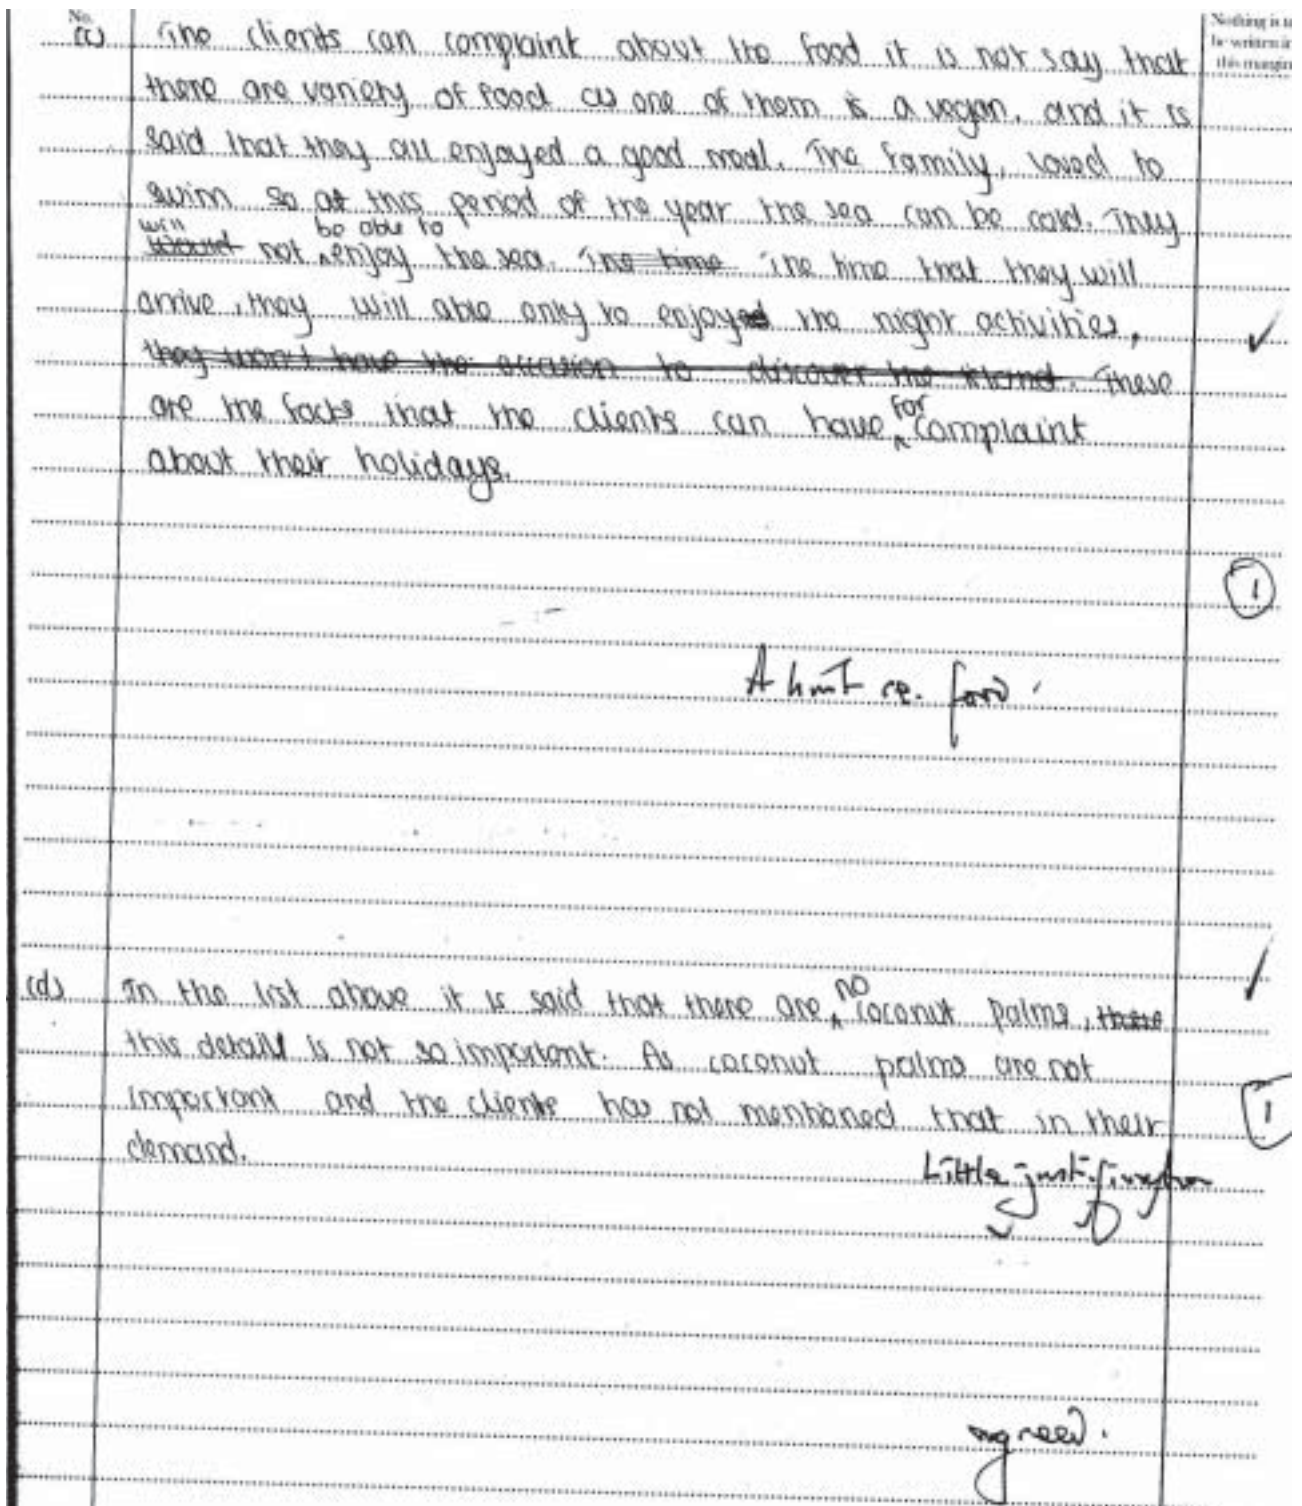 No.
Nothing is to
be written in
this margin
(c) The clients can complaint about the food it is not say that
there are variety of food as one of them is a vegan. and it is
said that they all enjoyed a good meal. The family, loved to
swim so at this period of the year the sea can be cold. They
will be able to
would not enjoy the sea. The time The time that they will
arrive, they will able only to enjoyed the night activities,
they won't have the occasion to discover the island. These
are the facts that the clients can have for complaint
about their holidays.
1
A hint re. food.
(d) In the list above it is said that there are no coconut palms, there
this detail is not so important. As coconut palms are not
important and the clients has not mentioned that in their
demand.
1
Little justification
agreed.